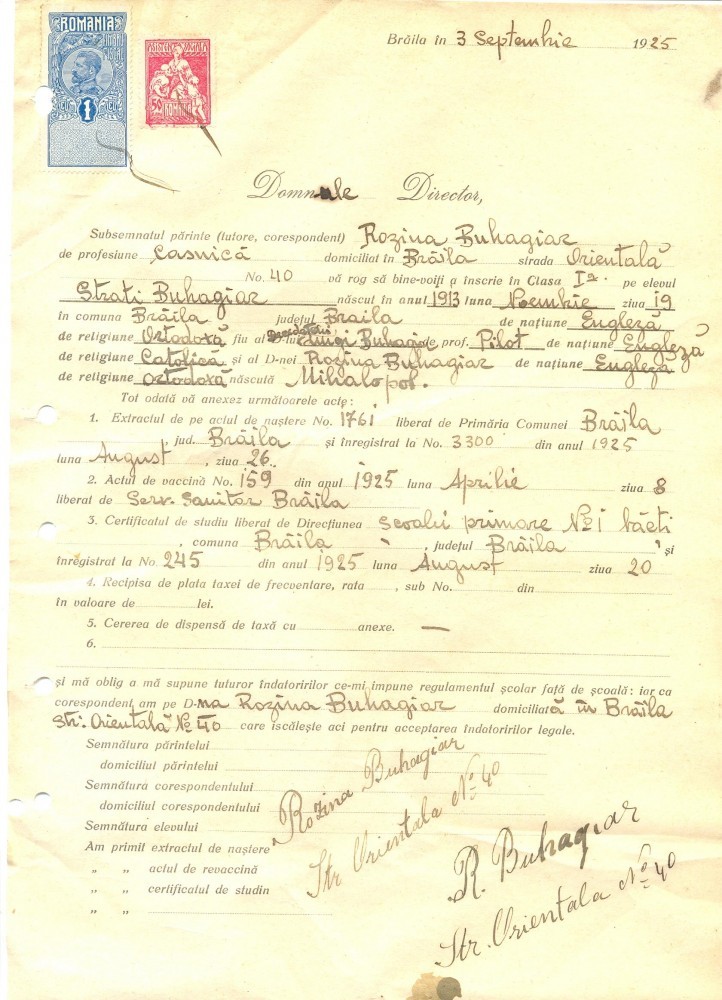 ROMANIA
1
50
ROMANIA
Brăila în 3 Septembrie 1925
Domnule Director,
Subsemnatul părinte (tutore, corespondent) Rozina Buhagiar
de profesiune Casnică domiciliat în Brăila strada Orientală
No. 40 vă rog să bine-voiți a înscrie în Clasa I a. pe elevul
Strati Buhagiar născut în anul 1913 luna Noembrie ziua 19
în comuna Brăila județul Braila de națiune Engleză
de religiune Ortodoxă fiu al D-lui Luigi Buhagiar de prof. Pilot de națiune Engleză
de religiune Catolică și al D-nei Rozina Buhagiar de națiune Engleză
de religiune Ortodoxă născută Mihalopol.
Tot odată vă anexez următoarele acte:
1. Extractul de pe actul de naștere No. 1761 liberat de Primăria Comunei Brăila
jud. Brăila și înregistrat la No. 3300 din anul 1925
luna August, ziua 26.
2. Actul de vaccină No. 159 din anul 1925 luna Aprilie ziua 8
liberat de Serv. Sanitar Brăila
3. Certificatul de studiu liberat de Direcțiunea Scoalei primare No 1 băeti
, comuna Brăila, județul Brăila și
înregistrat la No. 245 din anul 1925 luna August ziua 20
4. Recipisa de plata taxei de frecventare, rata , sub No. din
în valoare de lei.
5. Cererea de dispensă de taxă cu anexe. —
6.
și mă oblig a mă supune tuturor îndatoririlor ce-mi impune regulamentul școlar față de școală: iar ca
corespondent am pe D-na Rozina Buhagiar domiciliată în Brăila
Str. Orientală No 40 care iscălește aci pentru acceptarea îndatoririlor legale.
Semnătura părintelui
domiciliul părintelui
Semnătura corespondentului
domiciliul corespondentului
Semnătura elevului
Am primit extractul de naștere
„ „ actul de revaccină
„ „ certificatul de studin
„ „
Rozina Buhagiar
Str Orientala No 40
R. Buhagiar
Str. Orientala No 40